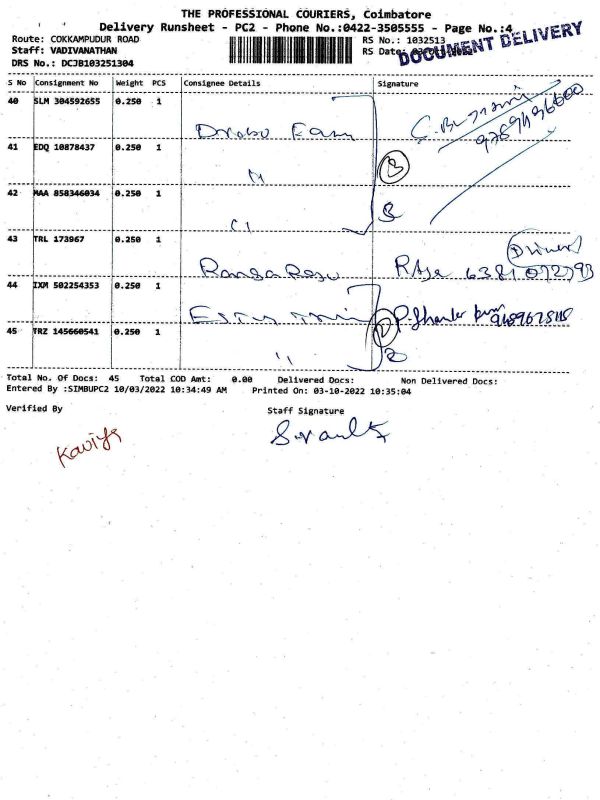 THE PROFESSIONAL COURIERS, Coimbatore
Delivery Runsheet - PC2 - Phone No.:0422-3505555 - Page No.:4
Route: COKKAMPUDUR ROAD RS No.: 1032513
Staff: VADIVANATHAN RS Date:
DOCUMENT DELIVERY
DRS No.: DCJB103251304
S No Consignment No Weight PCS Consignee Details Signature
40 SLM 304592655 0.250 1
41 EDQ 10878437 0.250 1 "
42 MAA 858346034 0.250 1 "
43 TRL 173967 0.250 1
Driver
6381072793
44 IXM 502254353 0.250 1
45 TRZ 145660541 0.250 1 "
Total No. Of Docs: 45 Total COD Amt: 0.00 Delivered Docs: Non Delivered Docs:
Entered By :SIMBUPC2 10/03/2022 10:34:49 AM Printed On: 03-10-2022 10:35:04
Verified By Staff Signature
Kaviya